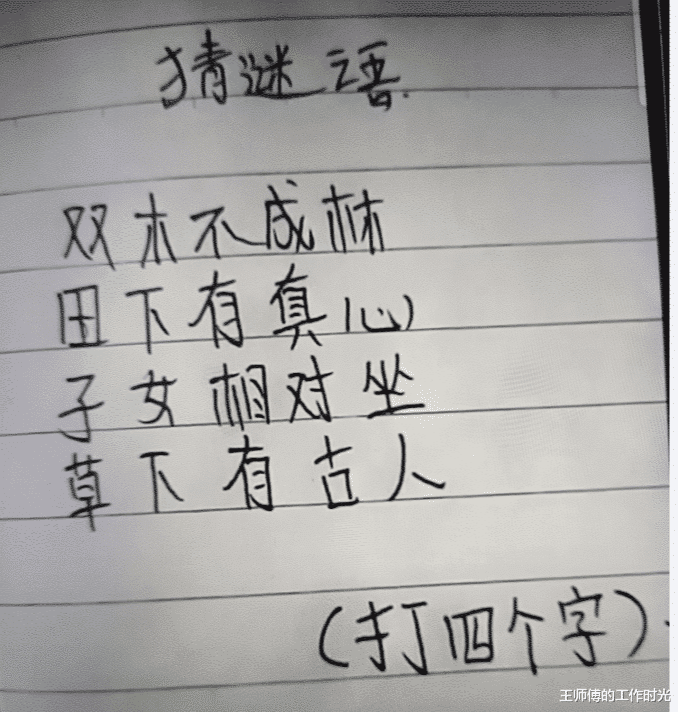 猜谜语.
双木不成林
田下有真心
子女相对坐
草下有古人
(打四个字).
王师傅的工作时光